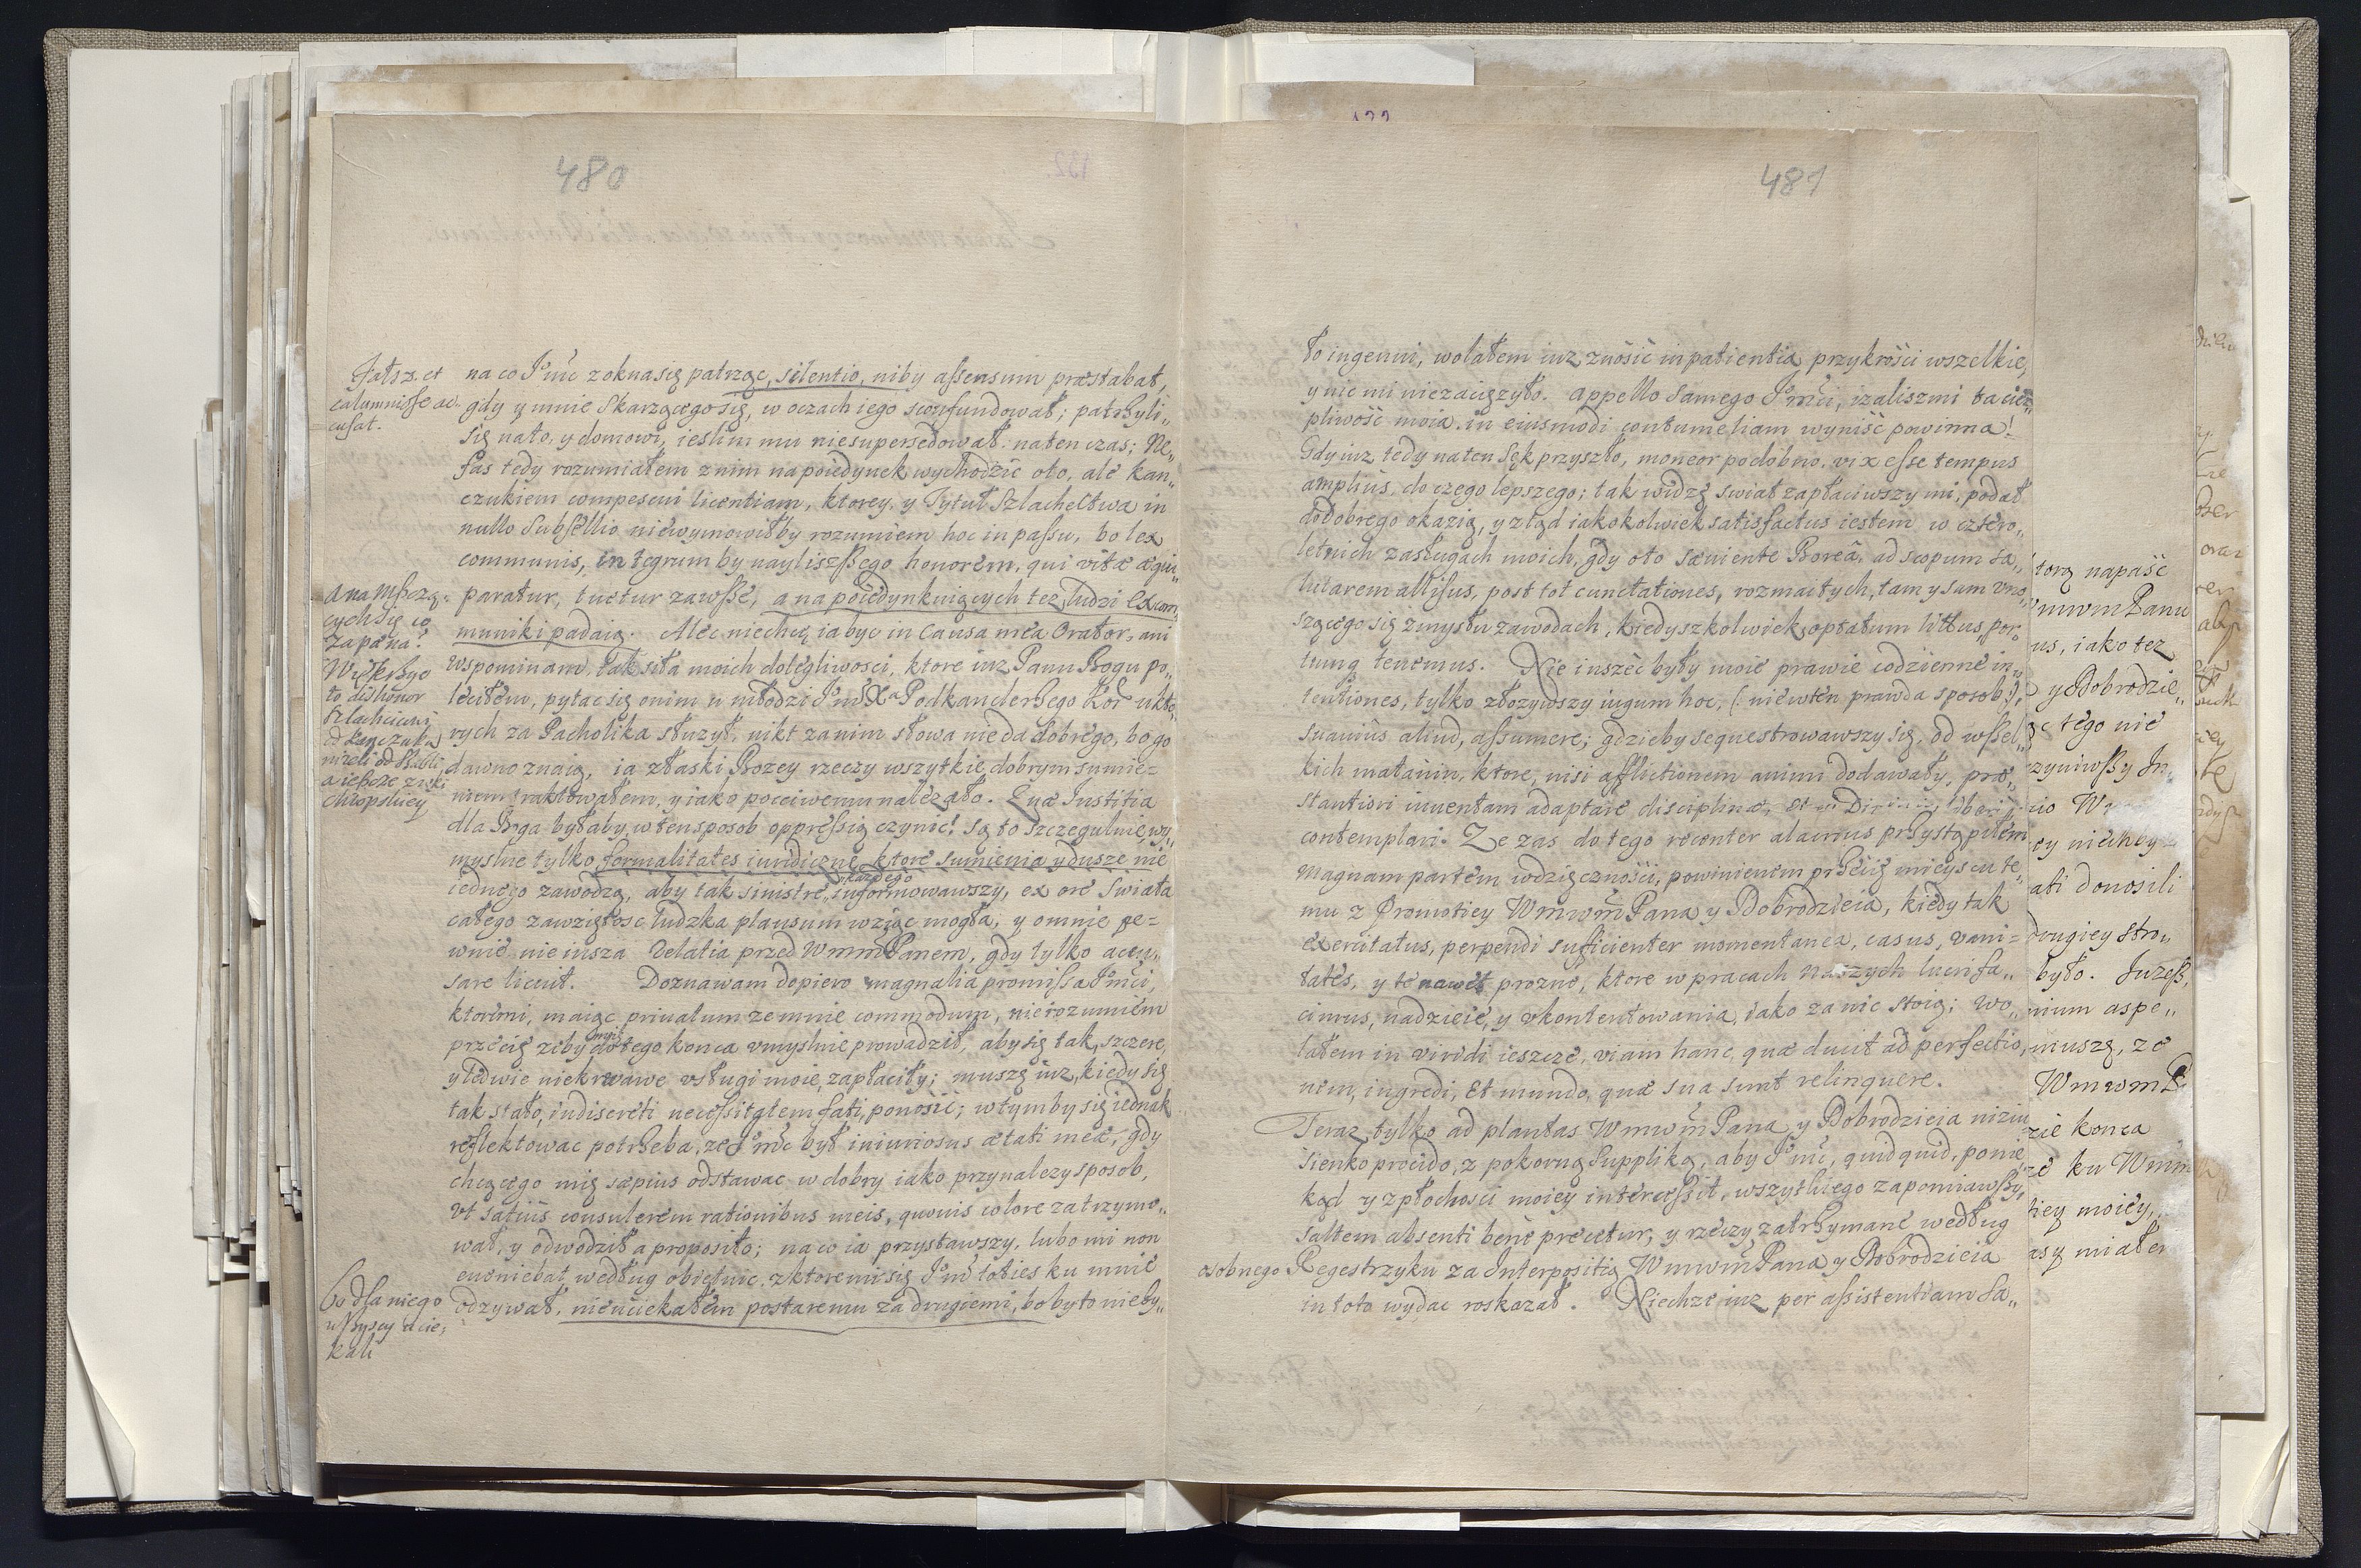 480
Fałsz. et
calumnisse ac
cusat.
na co Jmć z okna się patrząc, silentio, niby assensum præstabat,
gdy y mnie skarzącego się, w oczach iego sconfundował; patrzyli„
się na to, y domowi, ieslim mu niesupersedował na ten czas; Ne„
fas tedy rozumiałem z nim na poiedynek wychodzić oto, ale kan„
czukiem compescui licentiam, ktorey, y Tytuł Szlachectwa in
nullo Subsellio niewymowiłby rozumiem hoc in passu, bo lex
communis, integrum by nayliszszego honorem, qui vitæ æqui„
paratur, tuetur zawsze, a na poiedynkuiących tez ludzi Excom„
muniki padaią. Alec niechcę ia byc in Causa mea Orator, ani
wspominam, tak siła moich dolegliwosci, ktore iuz Panu Bogu po„
leciłem, pytac się onim u młodzi Jmć Xa Podkanclerzego Kor. ukto„
rych za Pacholika słuzył, nikt zanim słowa nie da dobrego, bo go
dawno znaią, ia z łaski Bozey rzeczy wszytkie dobrym sumie=
niem traktowałem, y iako poczciwemu nalezało. Quæ Iustitia
dla Boga byłaby, w ten sposob oppressią czynic! Są to szczegulnie, wy„
myslne tylko formalitates iuridiczne, ktore sumienia y dusze nie
iednego zawodzą, aby tak sinistre, informowawszy, ex ore Swiata
całego zawziętosc ludzka plausum wziąc mogła, y omnie pe=
wnie nie insza Relatia przed WmmPanem, gdy tylko accu„
sare licuit. Doznawam dopiero magnalia promissa Jmći,
ktoremi, maiąc priuatum ze mnie commodum, nierozumiem
przecię zeby mię do tego konca vmyslnie prowadził, aby się tak, szczere,
y ledwie niekrwawe vsługi moie, zapłaciły; muszę iuz, kiedy się
tak stało, indiscreti necessitatem fati, ponosić; w tym by się iednak
reflektowac potrzeba, ze Jmć był iniuriosus ætati meæ, gdy
chcącego mię sæpius odstawac w dobry iako przynalezy sposob,
vt satius consulerem rationibus meis, quouis colore zatrzymo„
wał, y odwodził a proposito; na co ia przystawszy, lubo mi non
eueniebat, według obietnic, z ktoremi się Jmć toties ku mnie
odzywał, nieuciekałem postaremu za drugiemi, bo by to nieby„
a na msczą-
cych się co
zapena?
Większyc
to dishonor
szlachcicowi
od kanczuka
nizeli od Szabli,
a ieszcze z ręki
chłopskiey
każdego
bo dla niego
wszyscy ucie„
kali
481
ło ingenui, wolałem iuz znosić in patientia przykrości wszelkie,
y nic mi niezaciężyło. Appello Samego Jmći, izaliszmi ta cier„
pliwość moia, in eiusmodi contumeliam wyniść powinna!
Gdy iuz tedy na ten Sęk przyszło, moneor podobno, vix esse tempus
amplius, do czego lepszego; tak widzę swiat zapłaciwszy mi, podał
do dobrego okazią, y ztąd iakokolwiek satisfactus iestem w cztero„
letnich zasługach moich, gdy oto sæuiente Boreâ, ad scopum sa„
lutarem allisus, post tot cunctationes, rozmaitych, tam y sam vno„
szącego się zmysłu zawodach, kiedyszkolwiek, optatum littus, por„
tumq tenemus. Nie inszec były moie prawie codzienne in„
tentiones, tylko złozywszy iugum hoc, (: niewten prawda sposob :),
suauius aliud, assumere; gdzieby sequestrowawszy się, od wszel„
kich matanin, ktore, nisi afflictionem animi dodawały, præ„
stantiori iuuentam adaptare disciplinæ, et
contemplari. Ze zas do tego recenter alacrius przystąpiłem
magnam partem wdzięcznosci, powinienem przecię mieyscu te„
mu z Promotiey WmwmPana y Dobrodzieia, kiedy tak
exercitatus, perpendi sufficienter momentanea, casus, vani=
tates, y te nawet prozno, ktore w pracach naszych lucrifa„
cimus, nadzieie, y vkontentowania, iako za nic stoią; Wo„
lałem in viridi ieszcze, viam hanc, quæ ducit ad perfectio„
nem, ingredi, Et mundo, quæ sua sunt relinquere.
Teraz tylko ad plantas WmwmPana y Dobrodzieia niziu
sienko procido, z pokorną Suppliką, aby Jmć, quidquid, ponie„
kąd y z płochosci moiey intercessit, wszytkiego zapomniawszy,
saltem absenti bene precetur, y rzeczy zatrzymane według
osobnego Regestrzyku za Interpositią WmwmPana y Dobrodzieia
in toto wydac roskazał. Niechze iuz per assistentiam Sa„
torą napaść
mwmPanu
us, iako tez
y Dobrodzie„
tego nie
zyniwszy In
ey niechby
ati donosili
drugiey stro„
było. Iuzesz,
nium aspe„
muszą, ze
WmwmP
zie konca
ze ku Wmm
tiey moiey,
asy miałem